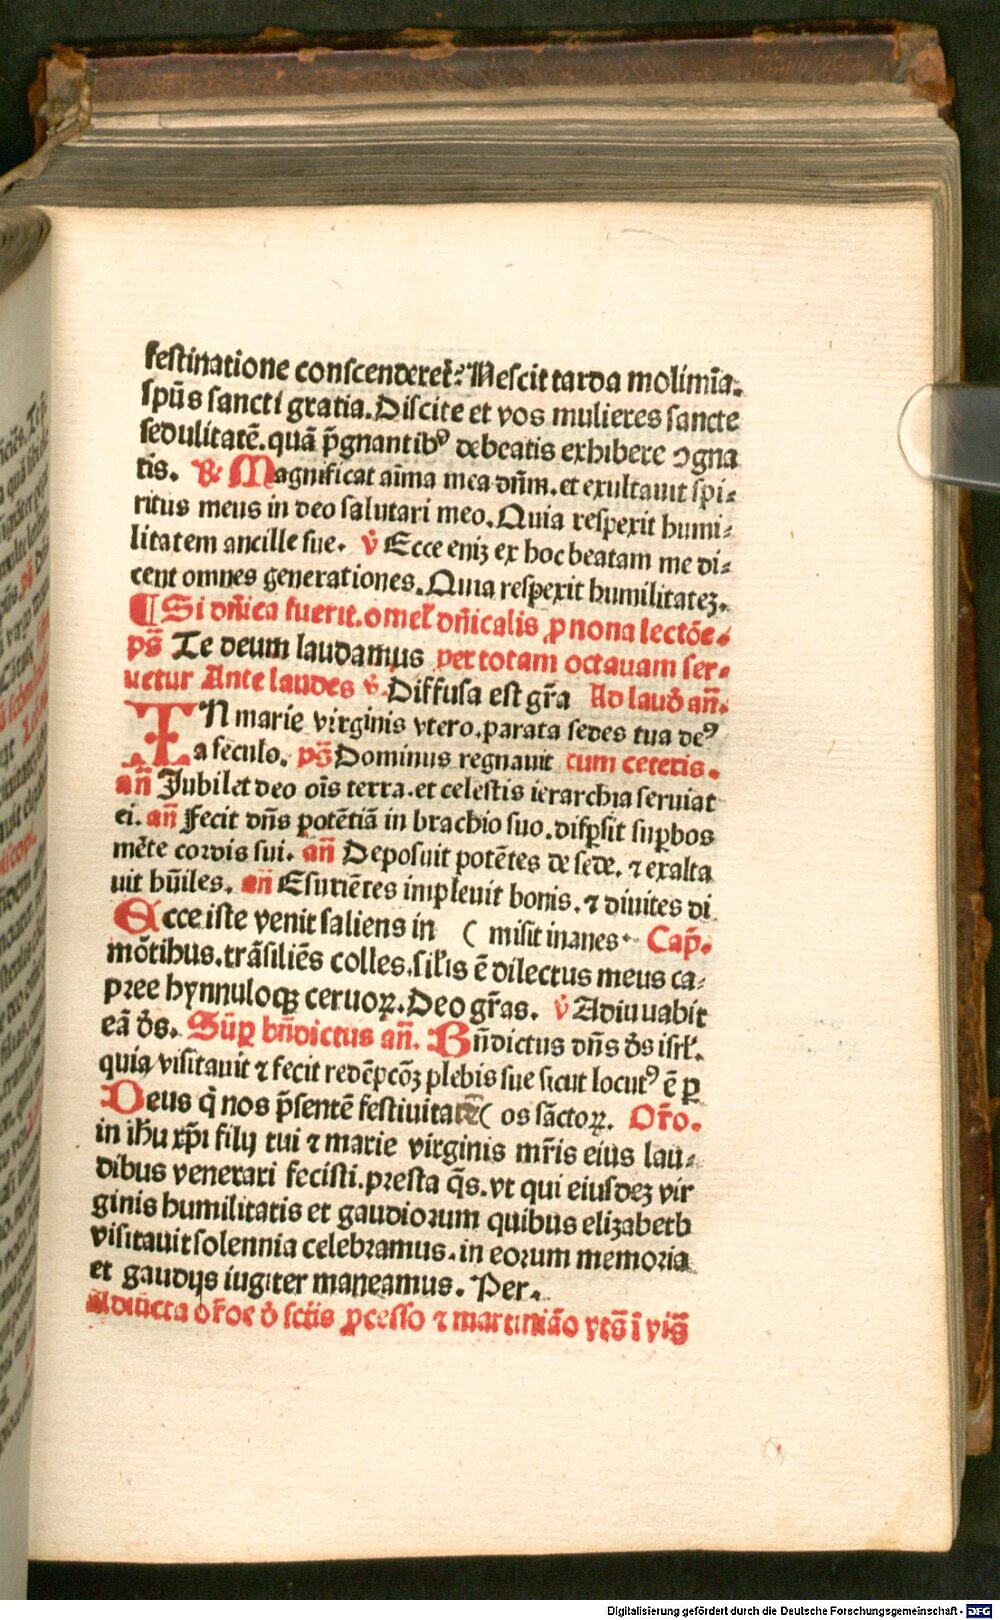 festinatione conscenderet̄? Nescit tarda molimīa.
spūs sancti gratia. Discite et vos mulieres sancte
sedulitatē. quā p̄gnantibꝰ debeatis exhibere ꝯgna
tis. ℟ Magnificat aīma mea dn̄m. et exultauit spi-
ritus meus in deo salutari meo. Quia respexit humi-
litatem ancille sue. v̇ Ecce eniꝫ ex hoc beatam me di-
cent omnes generationes. Quia respexit humilitateꝫ.
¶ Si dn̄ica fuerit. omel̓ dn̄icalis ꝓ nona lectōe.
ps̄ Te deum laudamus per totam octauam ser-
uetur Ante laudes v̇. Diffusa est gr̄a Ad laud̓ an̄.
IN marie virginis vtero. parata sedes tua deꝰ
a seculo. ps̄ Dominus regnauit cum ceteris.
an̄ Jubilet deo oīs terra. et celestis ierarchia seruiat
ei. an̄ Fecit dn̄s potētiā in brachio suo. disꝑsit suꝑbos
mēte cordis sui. an̄ Deposuit potētes de sede. ⁊ exalta
uit hūiles. an̄ Esuriētes impleuit bonis. ⁊ diuites di
Ecce iste venit saliens in ( misit inanes. Cap̄.
mōtibus. trāsiliēs colles. sil̓is ē dilectus meus ca-
pree hynnuloqꝫ ceruoꝝ. Deo gr̄as. v̇ Adiuuabit
eā d̓s. Sūꝑ bn̄dictus an̄. Bn̄dictus dn̄s d̓s isrl̓.
quia visitauit ⁊ fecit redēpcōꝫ plebis sue sicut locutꝰ ē ꝑ
Deus q̇ nos p̄sentē festiuitatē ( os sāctoꝝ. Or̄o.
in ih̓u xp̄i filij tui ⁊ marie virginis mr̄is eius lau-
dibus venerari fecisti. presta q̄s. vt qui eiusdeꝫ vir
ginis humilitatis et gaudiorum quibus elizabeth
visitauit solennia celebramus. in eorum memoria
et gaudijs iugiter maneamus. Per.
Adiūcta or̄oe d̓ sct̄is ꝓcesso ⁊ martiniāo vts̄ ī vig̓s̄
Digitalisierung gefördert durch die Deutsche Forschungsgemeinschaft - DFG